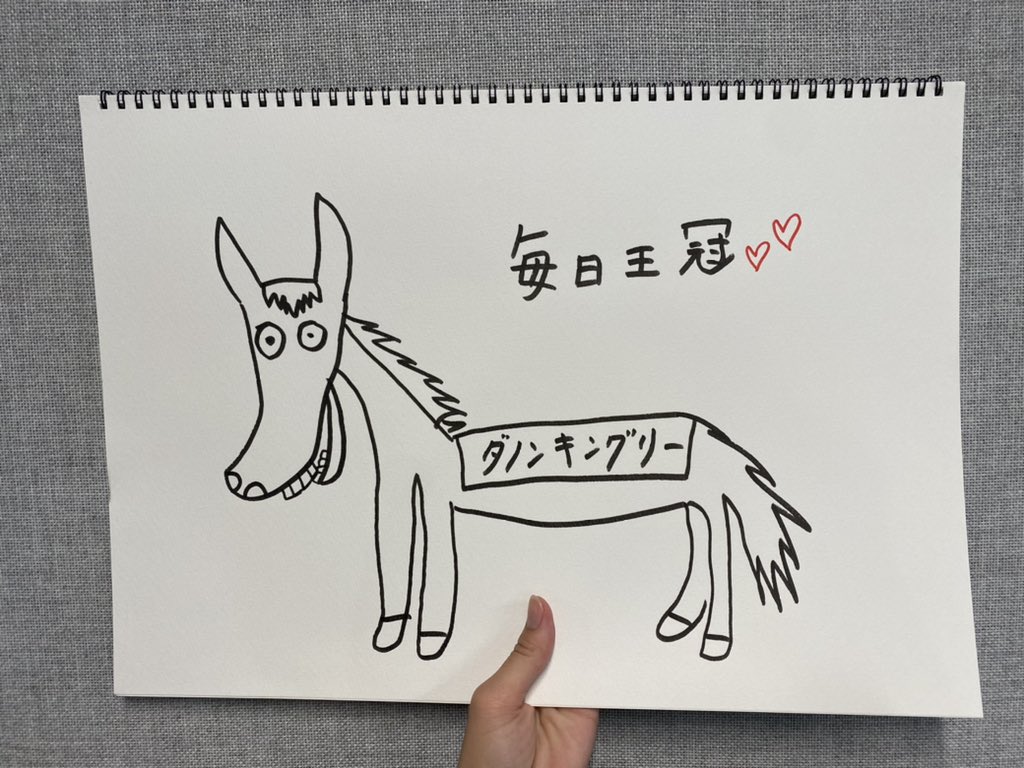 毎日王冠♡♡
ダノンキングリー